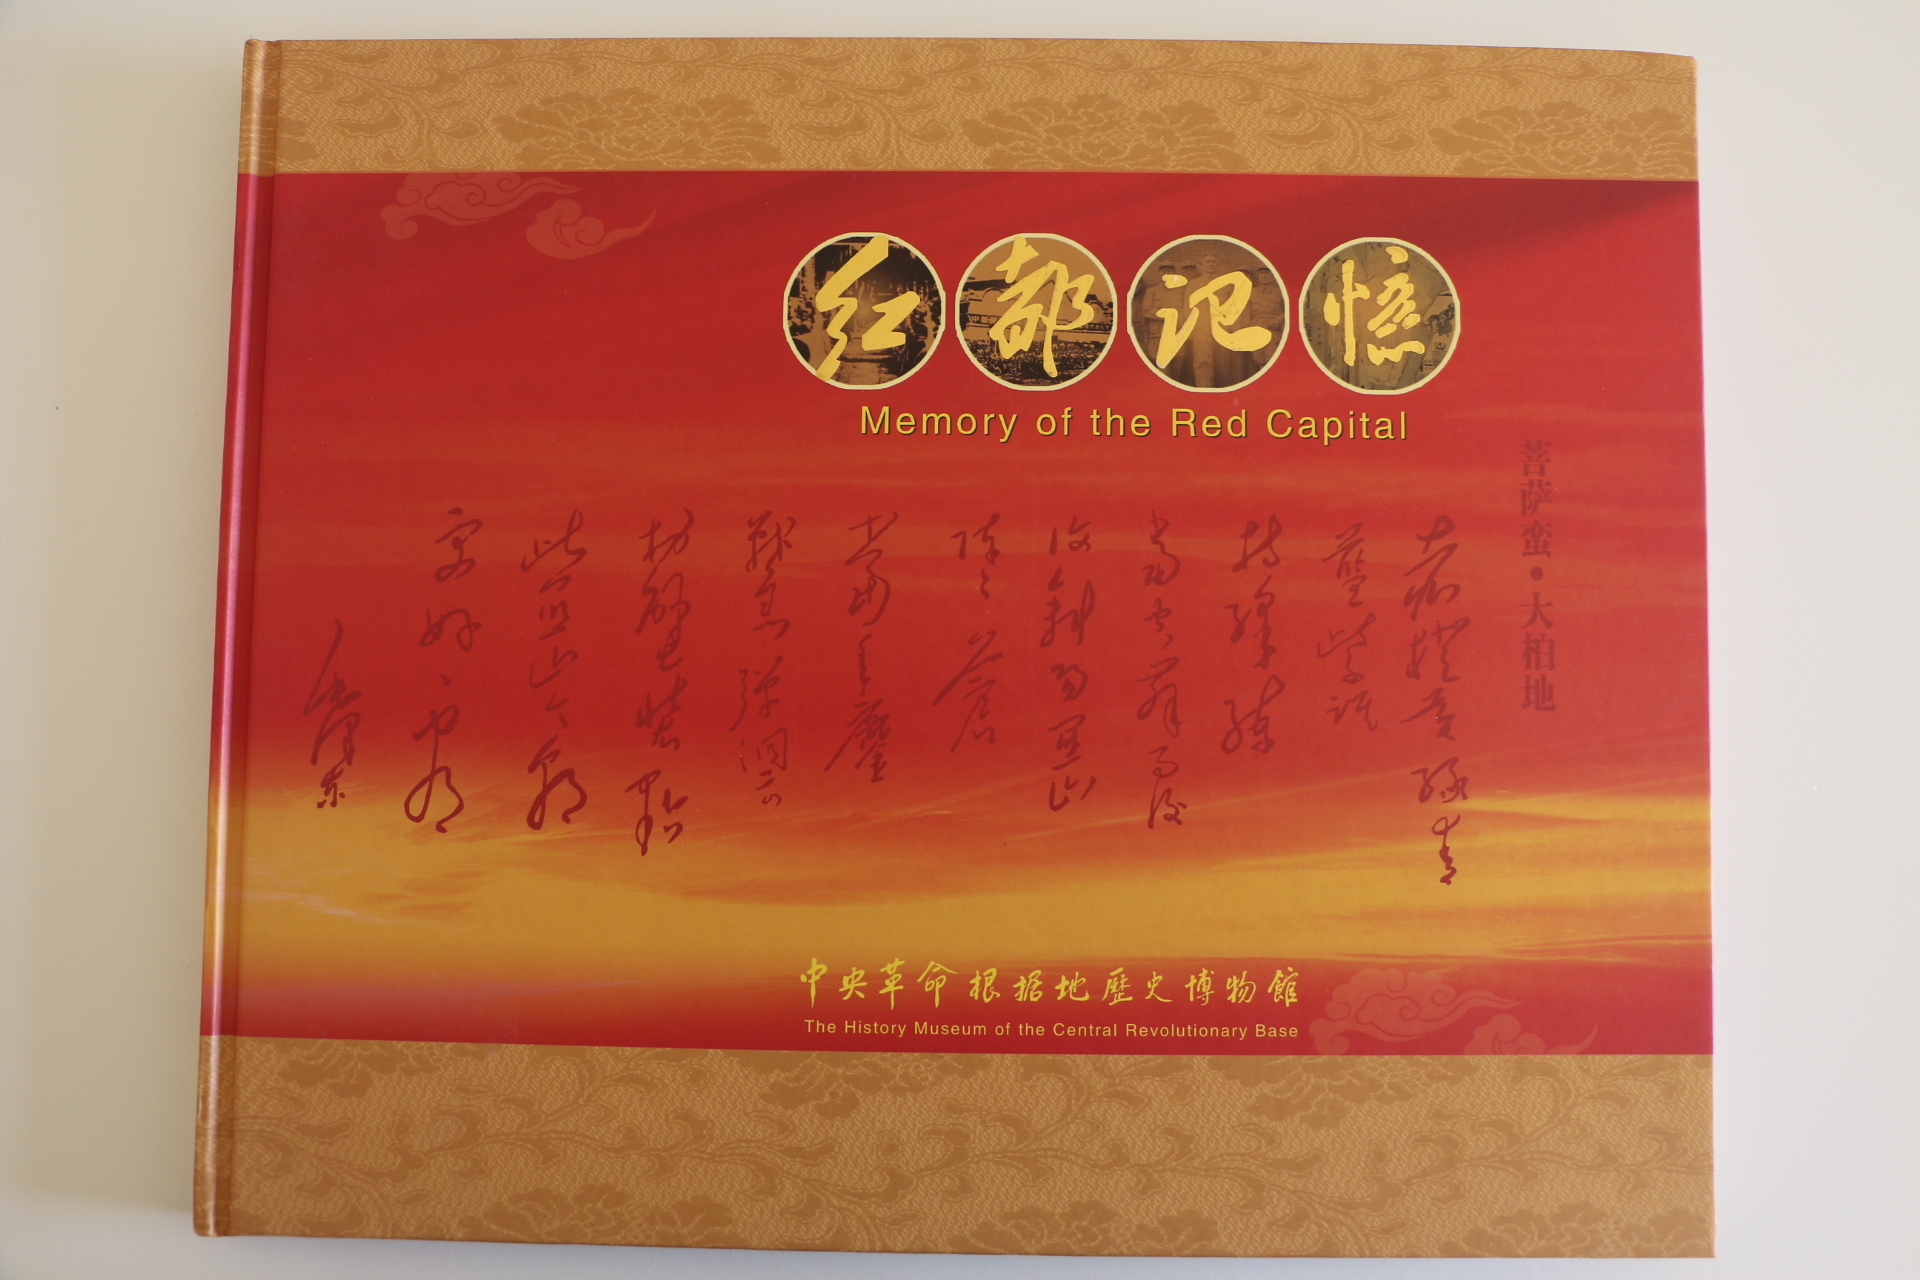 红都记憶
Memory of the Red Capital
菩萨蛮•大柏地
赤橙黄绿青
蓝紫谁
持綵练
当空舞雨后
复斜阳关山
阵々苍
当年鏖
战急弹洞前
村壁装点
此关山今朝
更好看
毛泽东
中央革命根据地歷史博物館
The History Museum of the Central Revolutionary Base